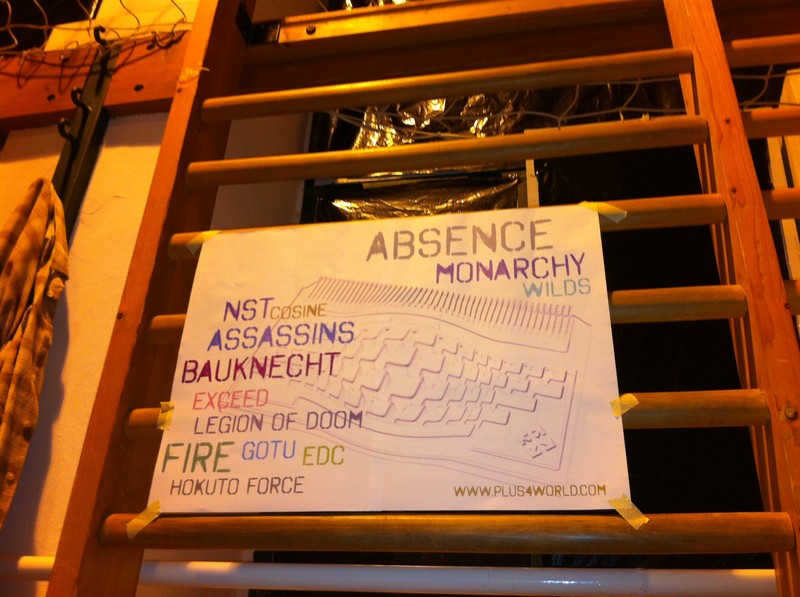 ABSENCE
MONARCHY
WILDS
NST COSINE
ASSASSINS
BAUKNECHT
EXCEED
LEGION OF DOOM
FIRE GOTU EDC
HOKUTO FORCE
WWW.PLUS4WORLD.COM